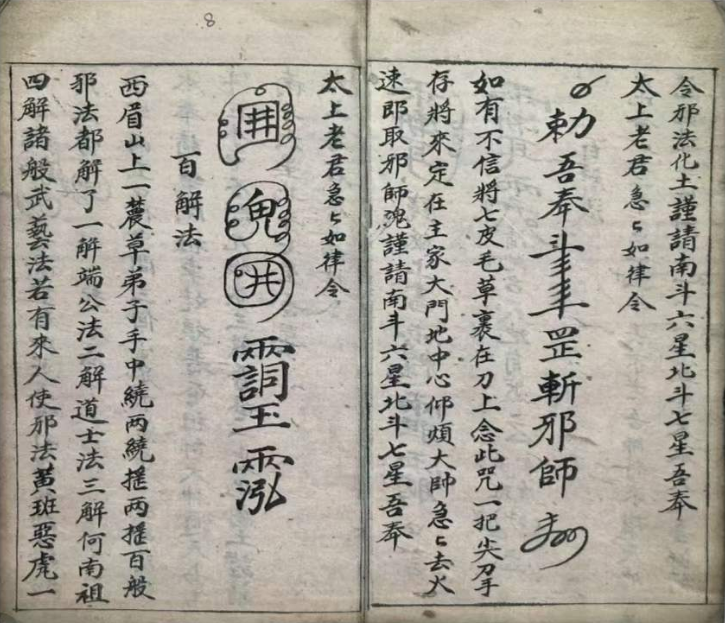 令邪法化土謹請南斗六星北斗七星吾奉
太上老君急々如律令
勅吾奉 罡斬邪師
如有不信將七皮毛草裹在刀上念此咒一把尖刀手
存將來定在主家大門地中心仰煩大帥急々去火
速即取邪師魂謹請南斗六星北斗七星吾奉
太上老君急々如律令
百解法
西眉山上一蓑草弟子手中繞兩繞搖兩搖百般
邪法都解了一解端公法二解道士法三解何南祖
四解諸般武藝法若有來人使邪法黃班惡虎一
8